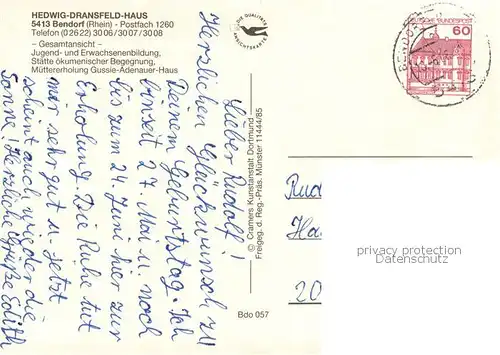 HEDWIG-DRANSFELD-HAUS
5413 Bendorf (Rhein) - Postfach 1260
Telefon (02622) 3006/3007/3008
– Gesamtansicht –
Jugend- und Erwachsenenbildung,
Stätte ökumenischer Begegnung,
Müttererholung Gussie-Adenauer-Haus
DIE QUALITÄTS
ANSICHTSKARTE
Lieber Rudolf!
Herzlichen Glückwunsch zu
Deinem Geburtstag. Ich
bin seit 27. Mai u. noch
bis zum 24. Juni hier zur
Erholung. Die Ruhe tut
mir sehr gut u. jetzt
scheint auch wieder die
Sonne! Herzliche Grüße Edith
© Cramers Kunstanstalt Dortmund
Freigeg. d. Reg.-Präs. Münster 11444/85
Bdo 057
DEUTSCHE BUNDESPOST
60
BENDORF
Rud
Ha
20
privacy protection
Datenschutz